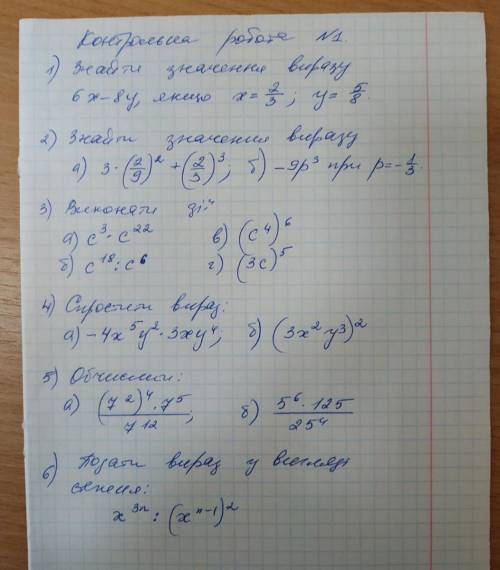 Контрольна робота №1.
1) Знайти значення виразу
6x-8y, якщо x=2/3; y=5/8.
2) Знайти значення виразу
а) 3·(2/9)²+(2/3)³; б) -9p³ при p=-1/3.
3) Виконати дії
а) c³·c²² в) (c⁴)⁶
б) c¹⁸:c⁶ г) (3c)⁵
4) Спростити вираз:
а) -4x⁵y²·3xy⁴; б) (3x²y³)²
5) Обчислити:
а) (7²)⁴·7⁵/7¹²; б) 5⁶·125/25⁴
6) Подати вираз у вигляді
степеня:
x³ⁿ:(xⁿ⁻¹)²